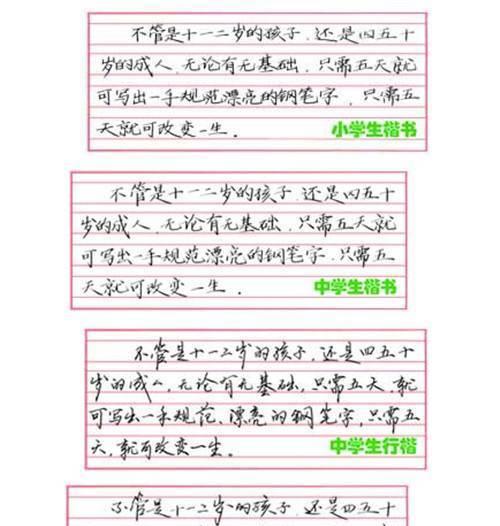 不管是十一二岁的孩子,还是四五十
岁的成人,无论有无基础,只需五天就
可写出一手规范漂亮的钢笔字,只需五
天就可改变一生。
小学生楷书
不管是十一二岁的孩子,还是四五十
岁的成人,无论有无基础,只需五天就
可写出一手规范漂亮的钢笔字,只需五
天就可改变一生。
中学生楷书
不管是十一二岁的孩子,还是四五十
岁的成人,无论有无基础,只需五天,就
可写出一手规范、漂亮的钢笔字,只需五
天,就可改变一生。
中学生行楷
不管是十一二岁的孩子,还是四五十